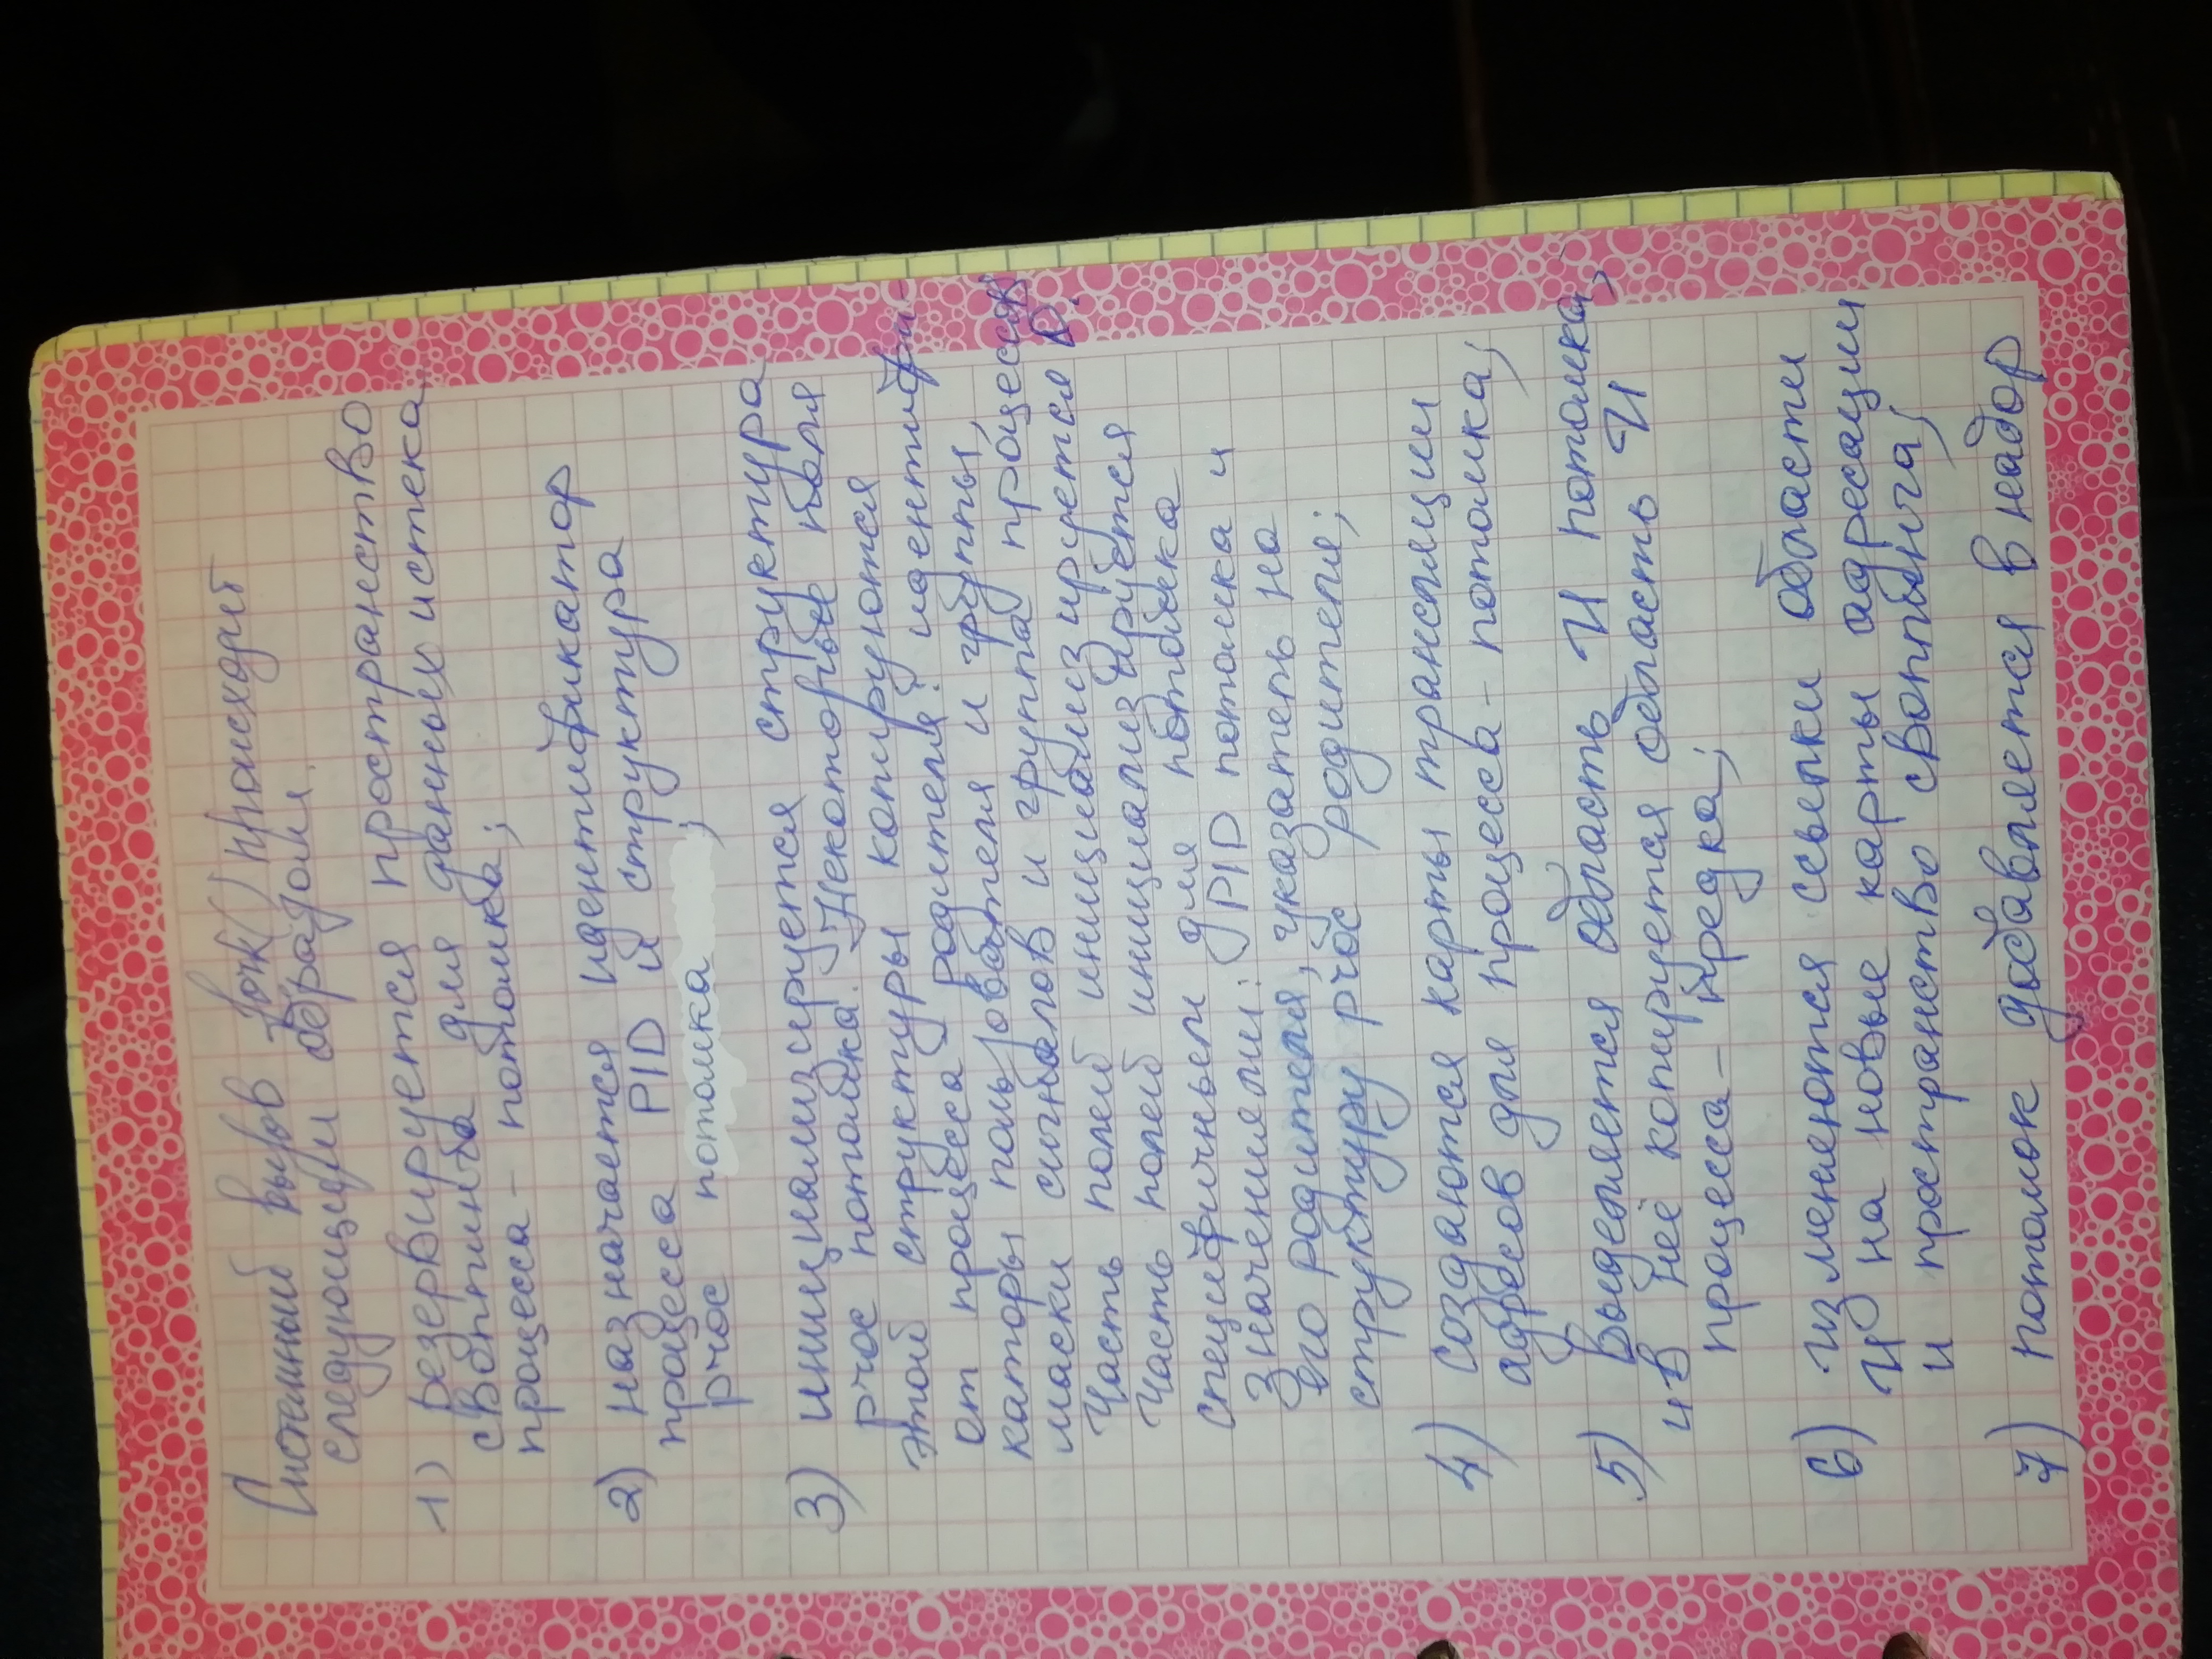 Системный вызов fork() происходит
следующим образом.
1) резервируется пространство
своппинга для данных и стека
процесса - потомка;
2) назначается идентификатор
процесса PID и структура
proc потомка ;
3) инициализируется структура
proc потомка. Некоторые поля
этой структуры копируются
от процесса - родителя: идентифи-
каторы пользователя и группы,
маски сигналов и группа процессов.
Часть полей инициализируется 0.
Часть полей инициализируется
специфичными для потомка
значениями: PID потомка и
его родителя, указатель на
структуру proc родителя;
4) создаются карты трансляции
адресов для процесса - потомка;
5) выделяется область U потомка,
и в неё копируется область U
процесса - предка;
6) изменяются ссылки области
U на новые карты адресации
и пространство своппинга;
7) потомок добавляется в набор